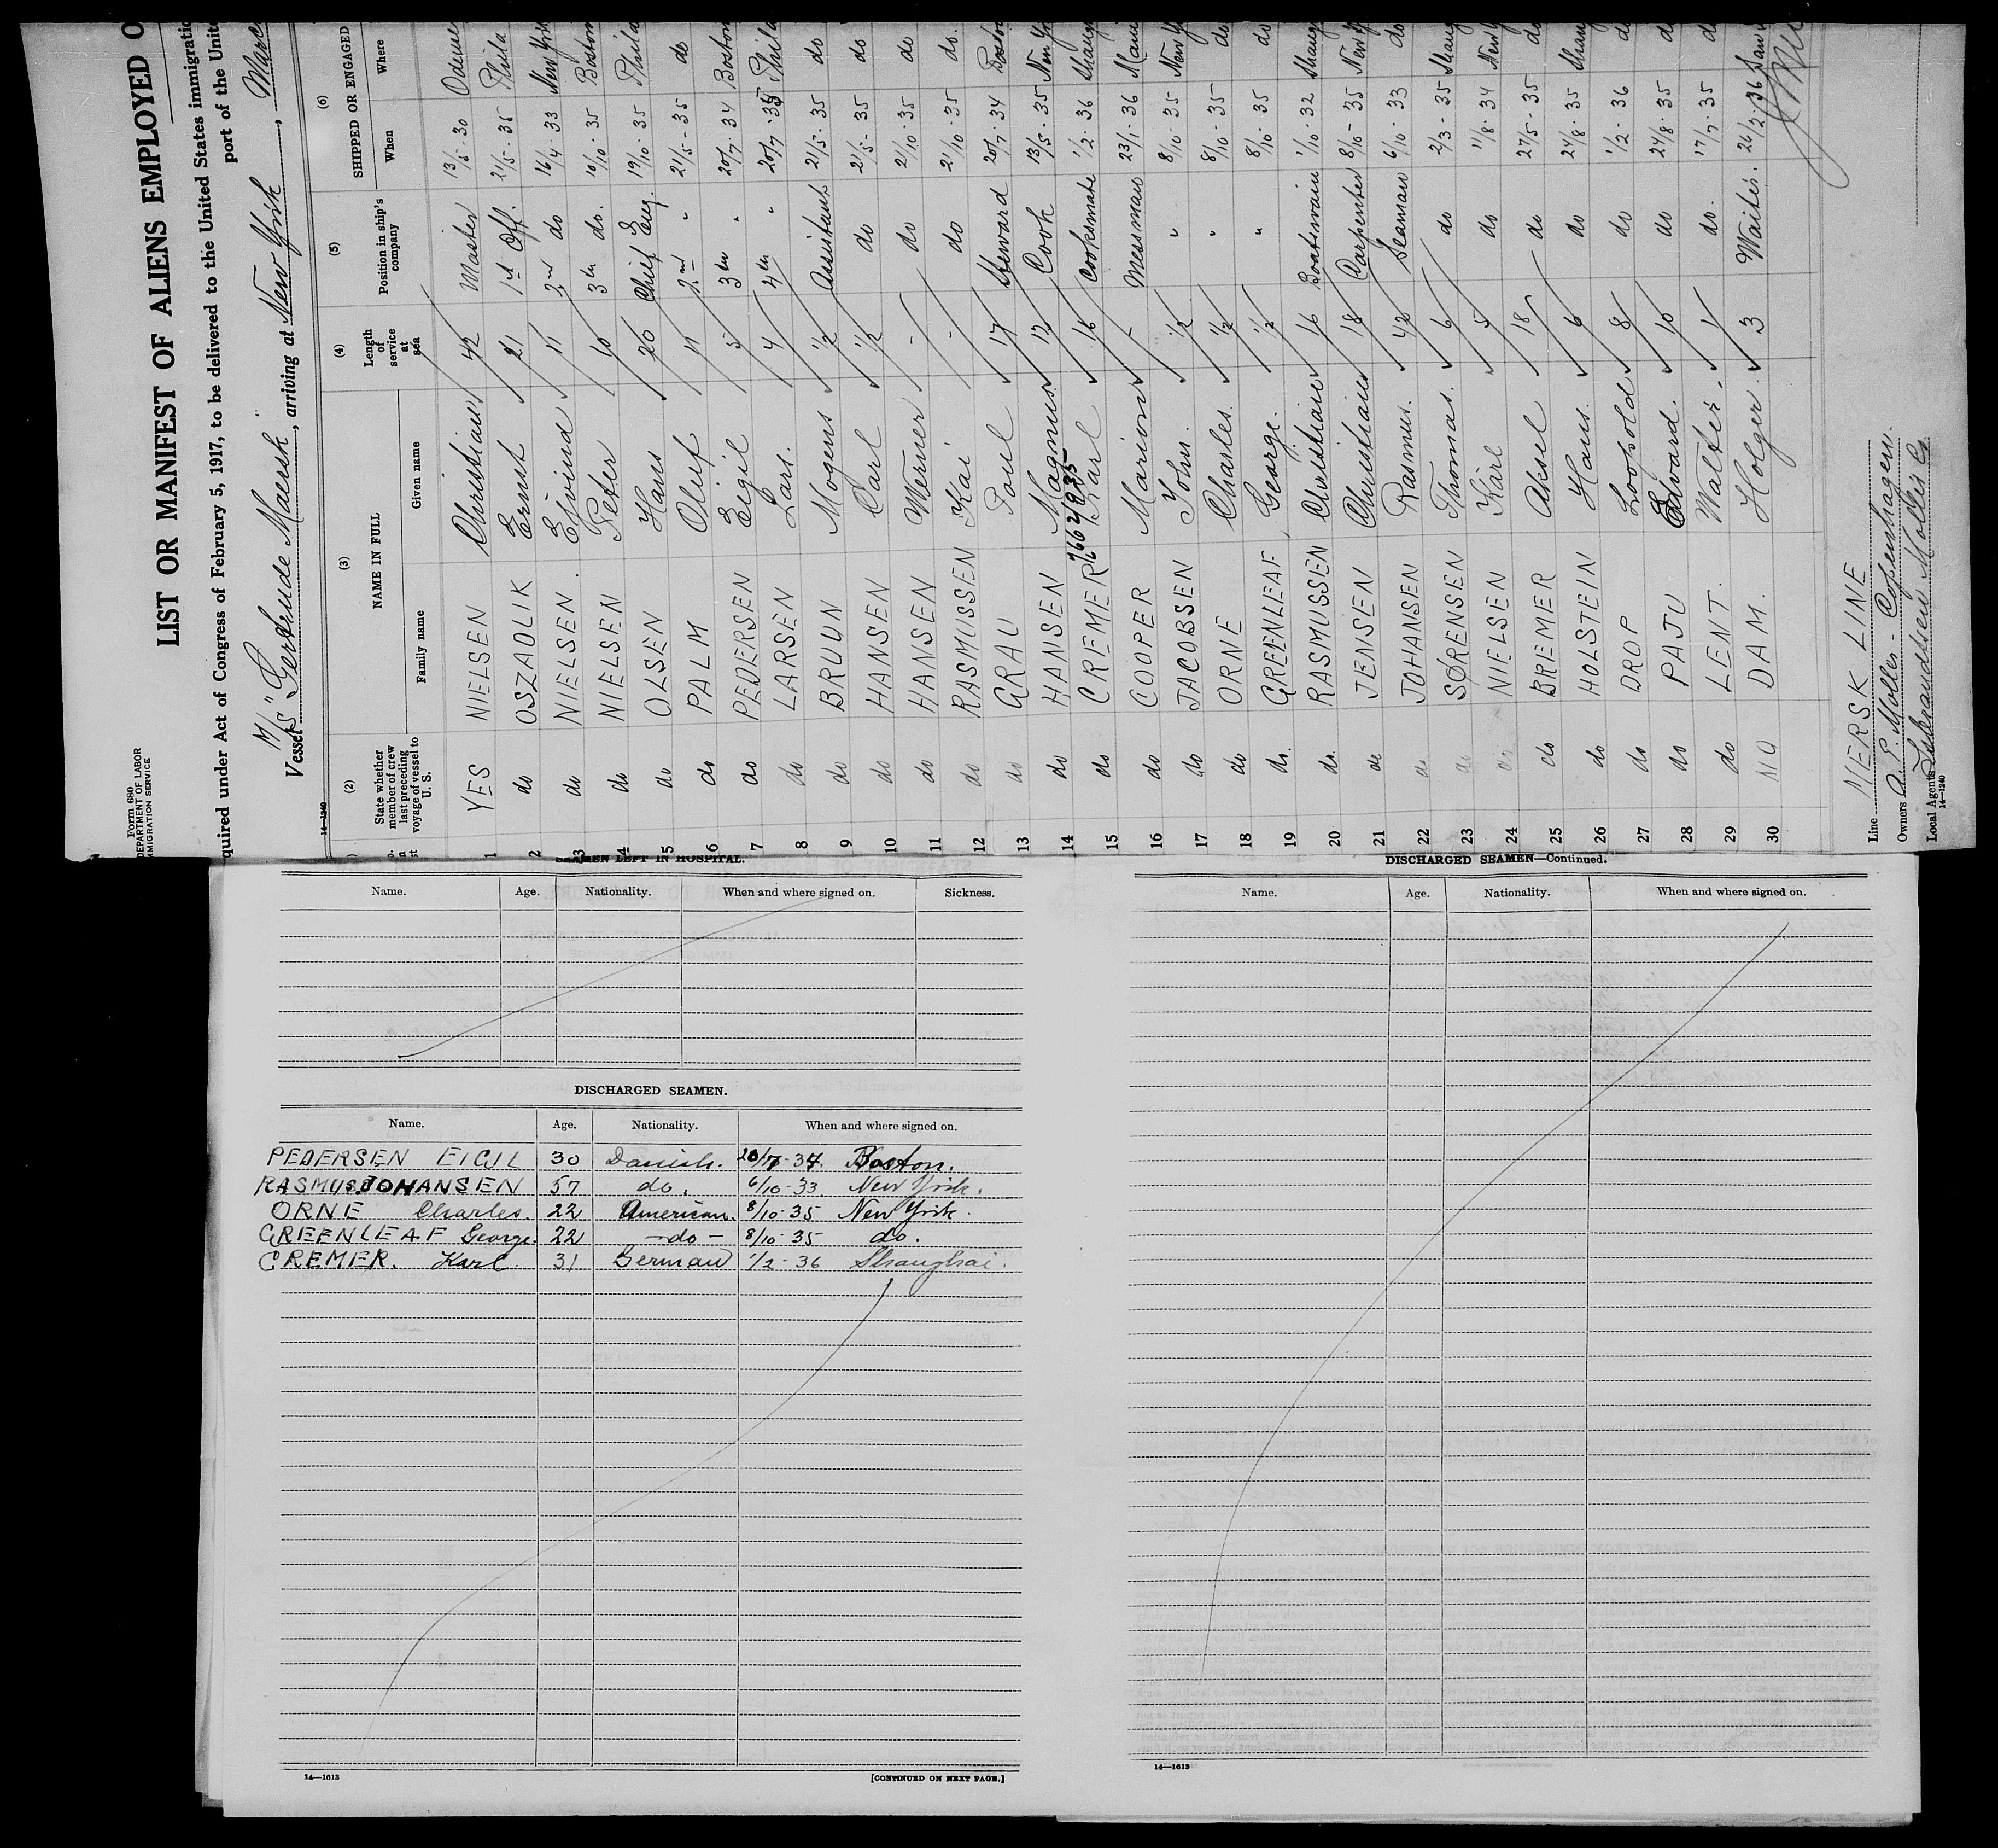 Form 680
DEPARTMENT OF LABOR
IMMIGRATION SERVICE
LIST OR MANIFEST OF ALIENS EMPLOYED O
quired under Act of Congress of February 5, 1917, to be delivered to the United States immigratic
port of the Unite
Vessel M/S "Gertrude Maersk", arriving at New York, Marc
14—1240
(2) (3) (4) (5) (6)
State whether member of crew last preceding voyage of vessel to U. S. NAME IN FULL Length of service at sea Position in ship's company SHIPPED OR ENGAGED
Family name Given name When Where
1 YES NIELSEN Christian 42 Master 13/5-30 Odense
2 do OSZADLIK Ernst 21 1st Off. 21/5-35 Phila
3 do NIELSEN. Ejvind 11 2nd do 16/4-33 New York
4 do NIELSEN Peter 10 3rd do. 10/10-35 Boston
5 do OLSEN Hans 26 Chief Eng. 19/10-35 Phila
6 do PALM Oluf 11 2nd " 21/5-35 do
7 do PEDERSEN Eigil 5 3rd " 20/7-34 Boston
8 do LARSEN Lars. 4 4th " 20/7-35 Phila
9 do BRUUN Mogens 1/2 Assistant 21/5-35 do
10 do HANSEN Carl 1/2 do 21/5-35 do
11 do HANSEN Werner - do 21/10-35 do
12 do RASMUSSEN Kai - do 21/10-35 do.
13 do GRAU Poul 17 Steward 20/7-34 Boston
14 do HANSEN Magnus 12 Cook 13/5-35 New Yo
15 do CREMER Karl 16 Cooksmate 1/2-36 Shang
16 do COOPER Marion - Messman 23/1-36 Mani
17 do JACOBSEN John. 1/2 " 8/10-35 New Y
18 do ORNE Charles. 1/2 " 8/10-35 do
19 do. GREENLEAF George. 1/2 " 8/10-35 do
20 do. RASMUSSEN Christian 16 Boatswain 1/10-32 Shang
21 do JENSEN Christian 18 Carpenter 8/10-35 New Y
22 do JOHANSEN Rasmus. 42 Seaman 6/10-33 do
23 do SØRENSEN Thomas. 6 do 2/3-35 Shang
24 do NIELSEN Karl 5 do 11/8-34 New
25 do BREMER Aksel 18 do 27/5-35 do
26 do HOLSTEIN Hans. 6 do 24/8-35 Shan
27 do DROP Leopold 8 do 1/2-36 d
28 do PAJU Edvard. 10 do 24/8-35 d
29 do LENT. Walter. 1 do. 17/7-35 d
30 NO DAM. Holger. 3 Waiter. 26/2-36 San
Line MERSK LINE
Owners A. P. Moller - Copenhagen.
Local Agents Moller Co
14—1240
SEAMEN LEFT IN HOSPITAL.
Name. Age. Nationality. When and where signed on. Sickness.
DISCHARGED SEAMEN.
Name. Age. Nationality. When and where signed on.
PEDERSEN EIGIL 30 Danish. 20/7-34. Boston.
RASMUS JOHANSEN 57 do. 6/10-33. New York.
ORNE Charles. 22 American. 8/10-35 New York.
GREENLEAF George. 22 —do— 8/10-35 do.
CREMER. Karl. 31 German 1/2-36 Shanghai.
14—1613
[CONTINUED ON NEXT PAGE.]
DISCHARGED SEAMEN—Continued.
Name. Age. Nationality. When and where signed on.
14—1613